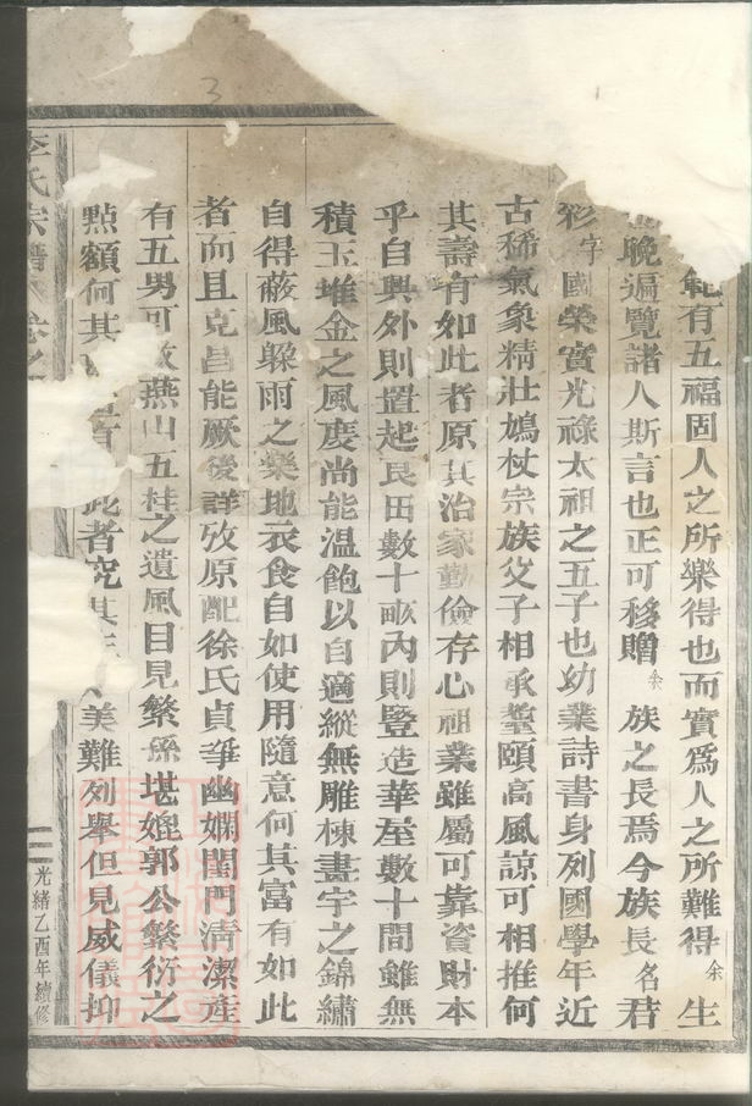 範有五福固人之所樂得也而實為人之所難得余生
晚遍覽諸人斯言也正可移贈余族之長焉今族長名君
彩字國榮實光祿太祖之五子也幼業詩書身列國學年近
古稀氣象精壯鳩杖宗族父子相承耋頤高風諒可相推何
其壽有如此者原其治家勤儉存心祖業雖屬可靠資財本
乎自興外則置起良田數十畝內則豎造華屋數十間雖無
積玉堆金之風度尚能溫飽以自適縱無雕棟畫宇之錦繡
自得蔽風躲雨之樂地衣食自如使用隨意何其富有如此
者而且克昌能厥後詳攷原配徐氏貞靜幽嫻閨門清潔產
有五男可 燕山五桂之遺風目見繁孫堪媲郭公繁衍之
點額何其 此者究其 美難列舉但見威儀抑
李氏宗譜 卷之
三 光緒乙酉年續修
3